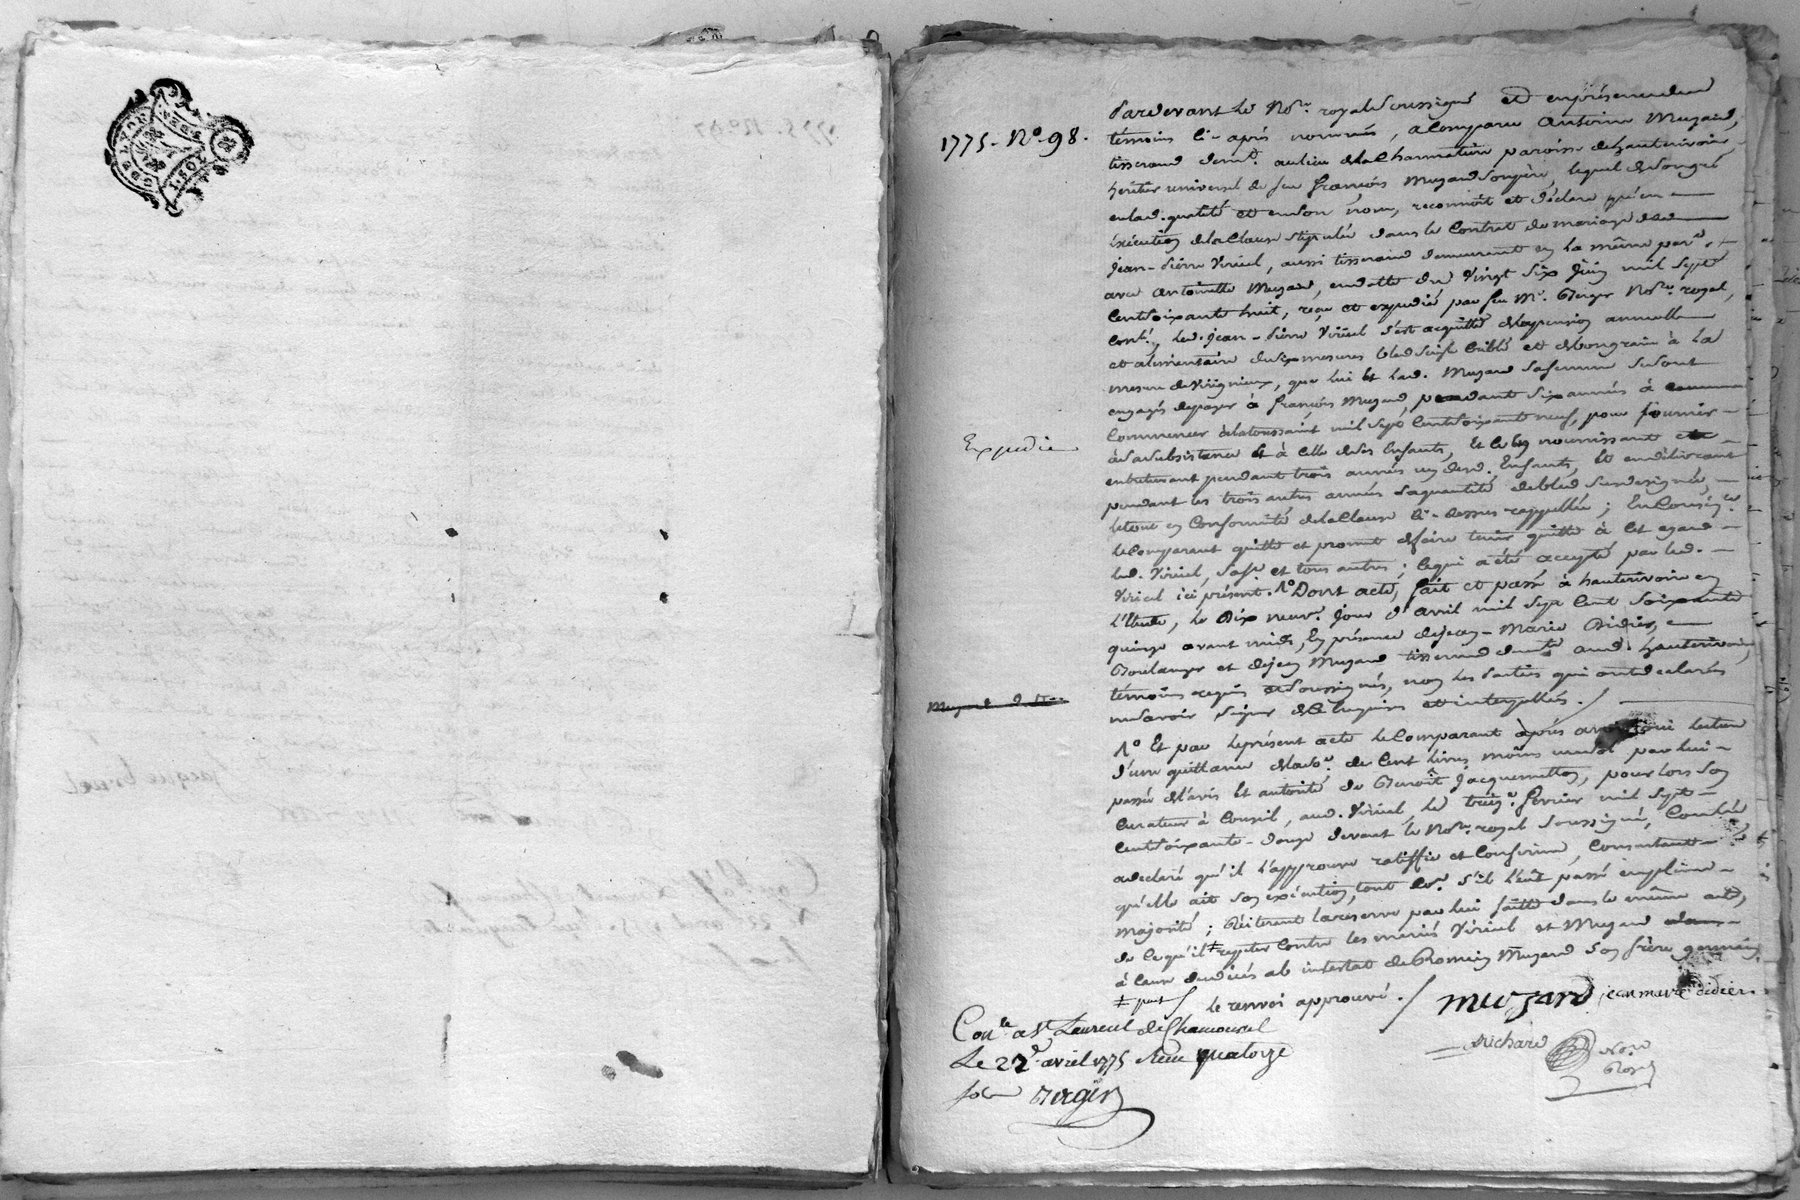 1775. N.o 98.
Pardevant le No.re royal soussigné et en présence des
témoins ci-après nommés, a comparu Antoine Muzard,
tisserand demt. au lieu de la Charmatière paroisse de hauterivoire
héritier universel de feu françois Muzard son père, lequel de son gré
en lad. qualité et en son nom, reconnoit et déclare qu'en
éxécution de la clause stipulée dans le contrat de mariage de
jean-pierre Viricel, aussi tisserand demeurant en la même par.e
avec Antoinette Muzard, en datte du vingt six juin mil sept
cent soixante huit, reçu et expedié par feu Me. Berger No.re royal,
led. jean-pierre Viricel s'est acquitté de la pension annuelle
et alimentaire de six mesures bled seigle criblé et de bon grain à la
mesure de Virignieux, que lui et lad. Muzard sa femme se sont
engagés de payer à françois Muzard, pendant six années à
commencer à la toussaint mil sept cent soixante neuf, pour fournir
à sa subsistance et à celle de ses enfants, et ce en nourrissant et
entretenant pendant trois années un desd. Enfants, et en délivrant
pendant les trois autres années la quantité de bled susdesignée,
le tout en conformité de la clause ci-dessus rappellée; En conséq.ce
le comparant quitte et promet de faire tenir quitte à cet egard
led. Viricel, sa fe. et tous autres; ce qui a été accepté par led.
Viricel ici présent. 1o Dont acte, fait et passé à hauterivoire en
l'Etude, le Dix neuv.e jour d'avril mil sept cent soixante
quinze avant midi, En présence de jean-Marie Didier,
Boulanger et de jean Muzard tisserand demt. aud. hauterivoire,
témoins requis et soussignés, non les parties qui ont declarés
ne savoir signer de ce enquises et interpellées.
1o Et par le présent acte le comparant après avoir oui lecture
d'une quittance de la so.e de cent livres moins un sol par lui
passée de l'avis et autorité de Benoît Jacquemetton, pour lors son
curateur à conseil, aud. Viricel, le treiz.e février mil sept
cent soixante-douze devant le No.re royal soussigné, Contrôlée
a declaré qu'il l'approuve ratiffie et confirme, consentant
qu'elle ait son exécution, tout de m. s'il l'eut passé en pleine
majorité; Réiterant la reserve par lui faitte dans le même acte,
de ce qu'il ‡ repeter contre les mariés Viricel et Muzard
à cause du decès ab intestat de Romain Muzard son frère germain
‡ peut / le renvoi approuvé. /
Expedié
muzard jean marie didier
Richard No.re Royal
Con.lé a St. Laurent de Chamousset
Le 22e avril 1775 Reçu quatorze
sols Berger